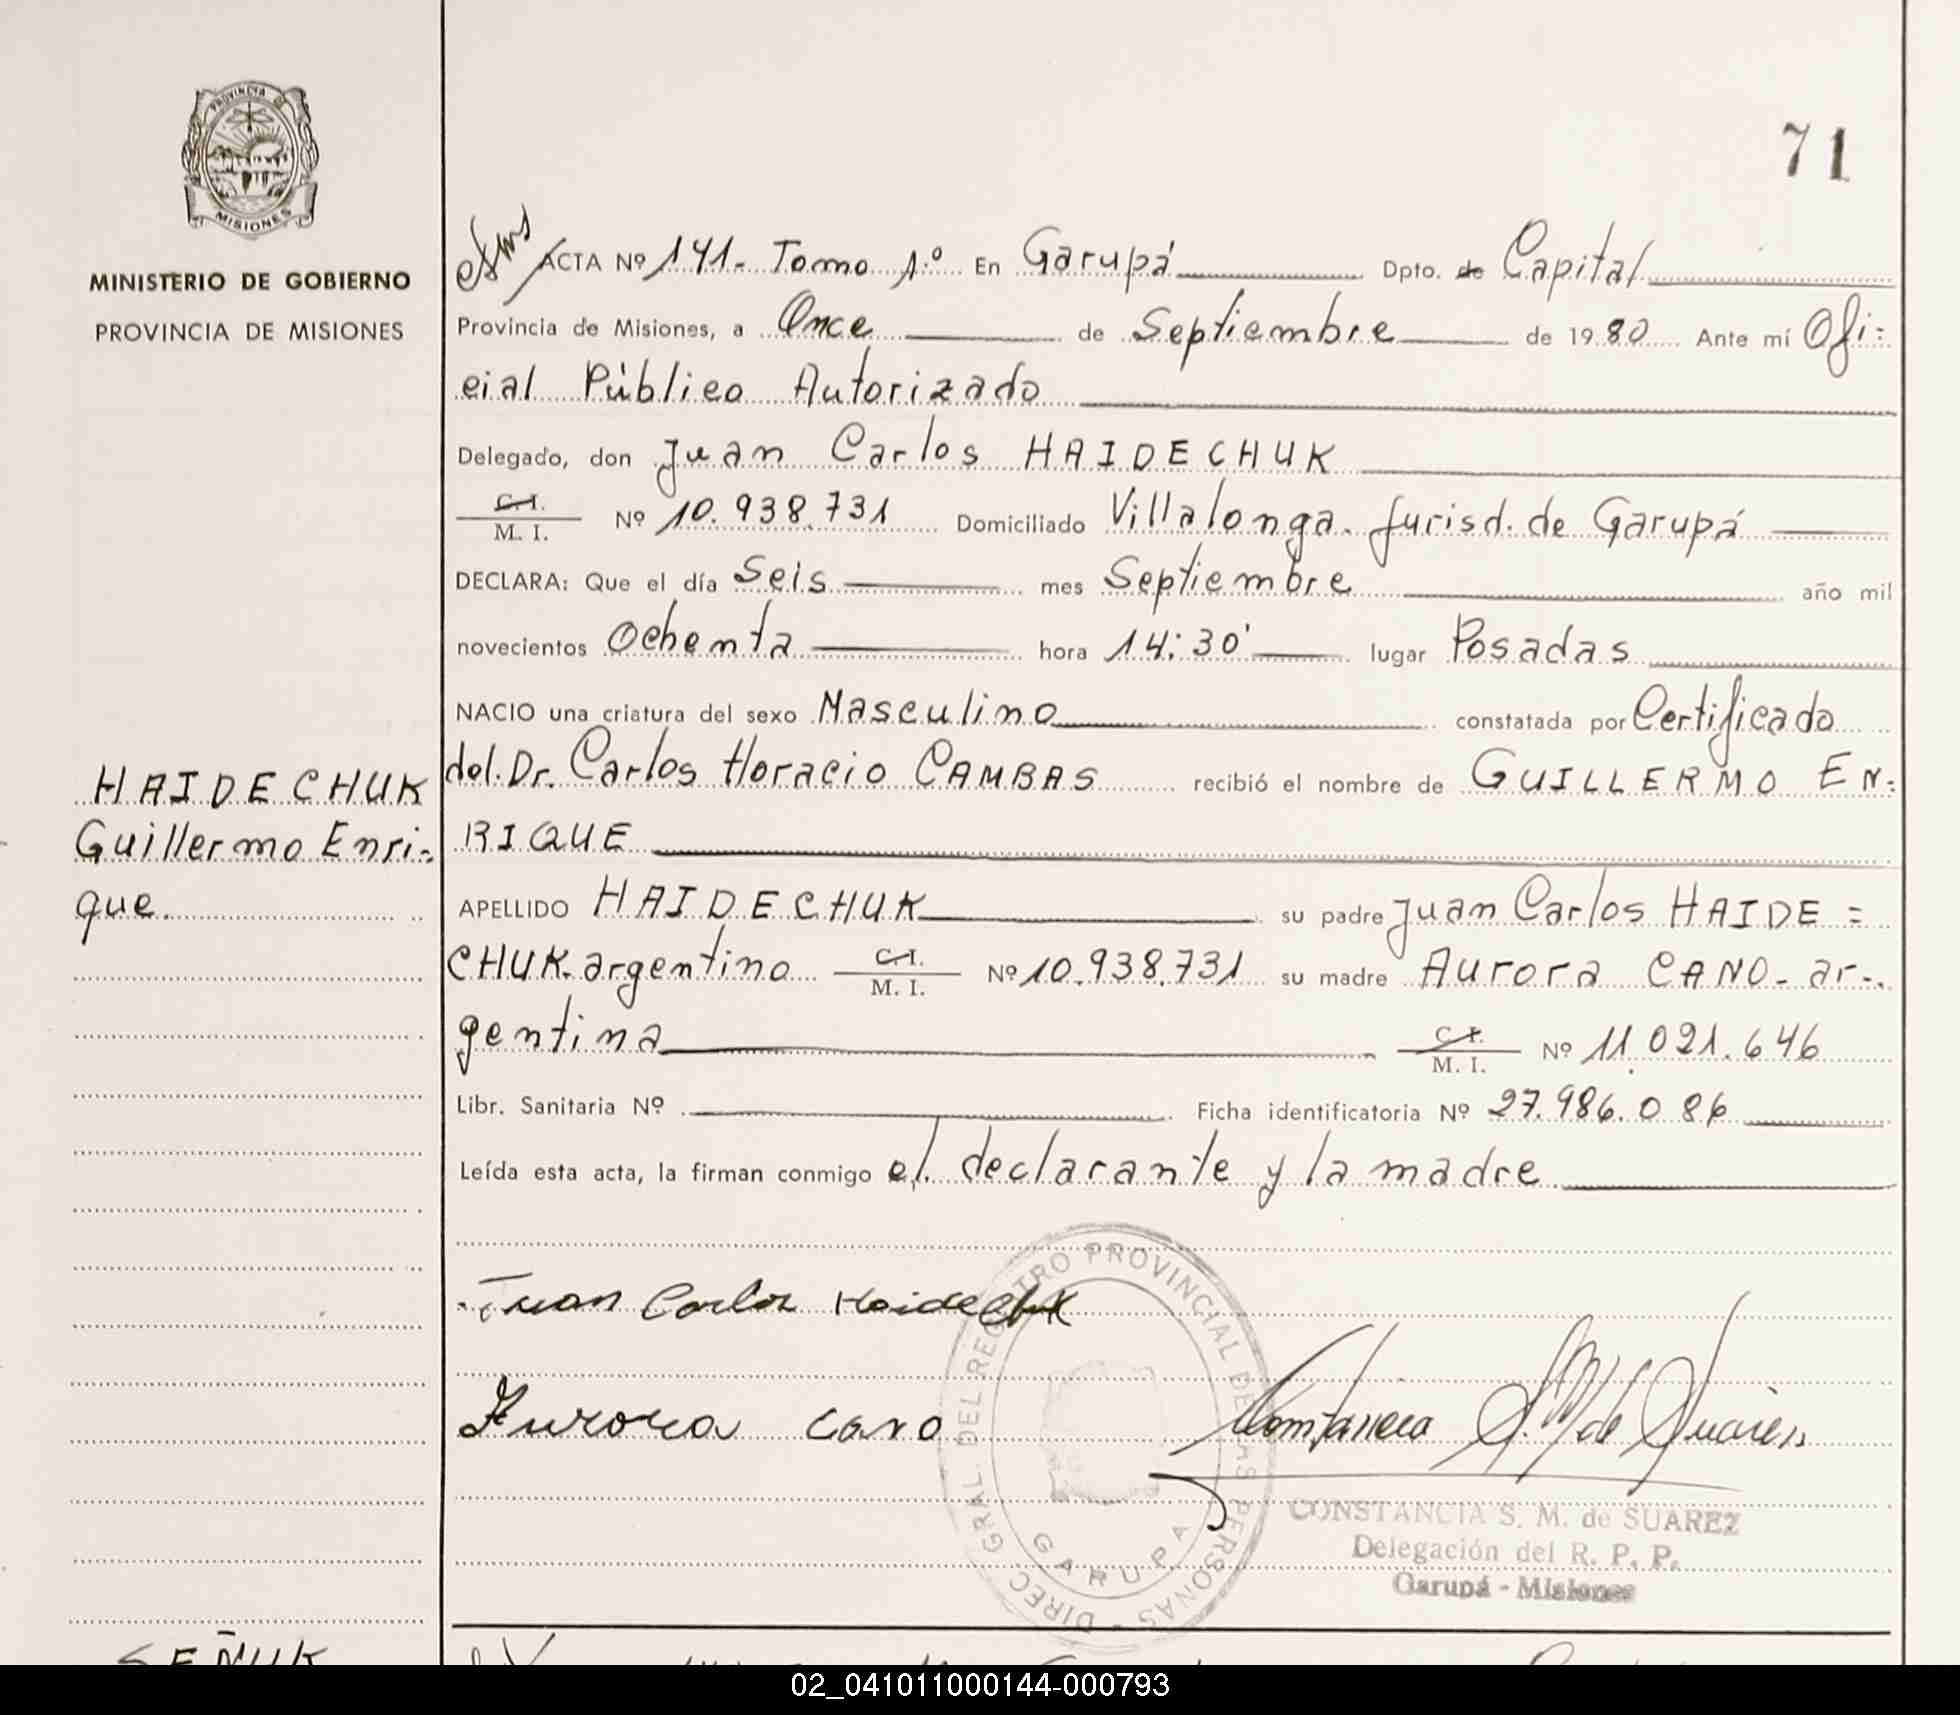 71
PROVINCIA DE
MISIONES
MINISTERIO DE GOBIERNO
PROVINCIA DE MISIONES
HAIDECHUK
Guillermo Enri-
que
ACTA Nº 141- Tomo 1.º En Garupá Dpto. de Capital
Provincia de Misiones, a Once de Septiembre de 1980 Ante mí Ofi=
cial Público Autorizado
Delegado, don Juan Carlos HAIDECHUK
C. I.
M. I. Nº 10.938.731 Domiciliado Villalonga. Jurisd. de Garupá
DECLARA: Que el día Seis mes Septiembre año mil
novecientos Ochenta hora 14:30' lugar Posadas
NACIO una criatura del sexo Masculino constatada por Certificado
del Dr. Carlos Horacio CAMBAS recibió el nombre de GUILLERMO EN=
RIQUE
APELLIDO HAIDECHUK su padre Juan Carlos HAIDE=
CHUK. argentino C. I. M. I. Nº 10.938.731 su madre Aurora CANO- ar-
gentina C. I. M. I. Nº 11.021.646
Libr. Sanitaria Nº Ficha identificatoria Nº 27.986.086
Leída esta acta, la firman conmigo el declarante y la madre
Juan Carlos Haidechuk
Aurora Cano
DIREC. GRAL. DEL REGISTRO PROVINCIAL DE LAS PERSONAS -
GARUPA
Constancia S. M. de Suárez
CONSTANCIA S. M. de SUAREZ
Delegación del R. P. P.
Garupá - Misiones
SEÑUK
02_041011000144-000793